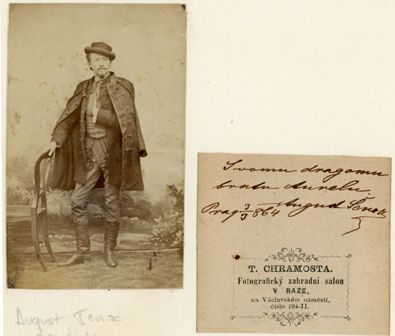 Svomu dragomu
bratu Aurelu
August Šenoa
Prag 3/3 864
T. CHRAMOSTA.
Fotografický zahradní salon
V BAZE,
na Václavském náměstí,
číslo 784-II.
August